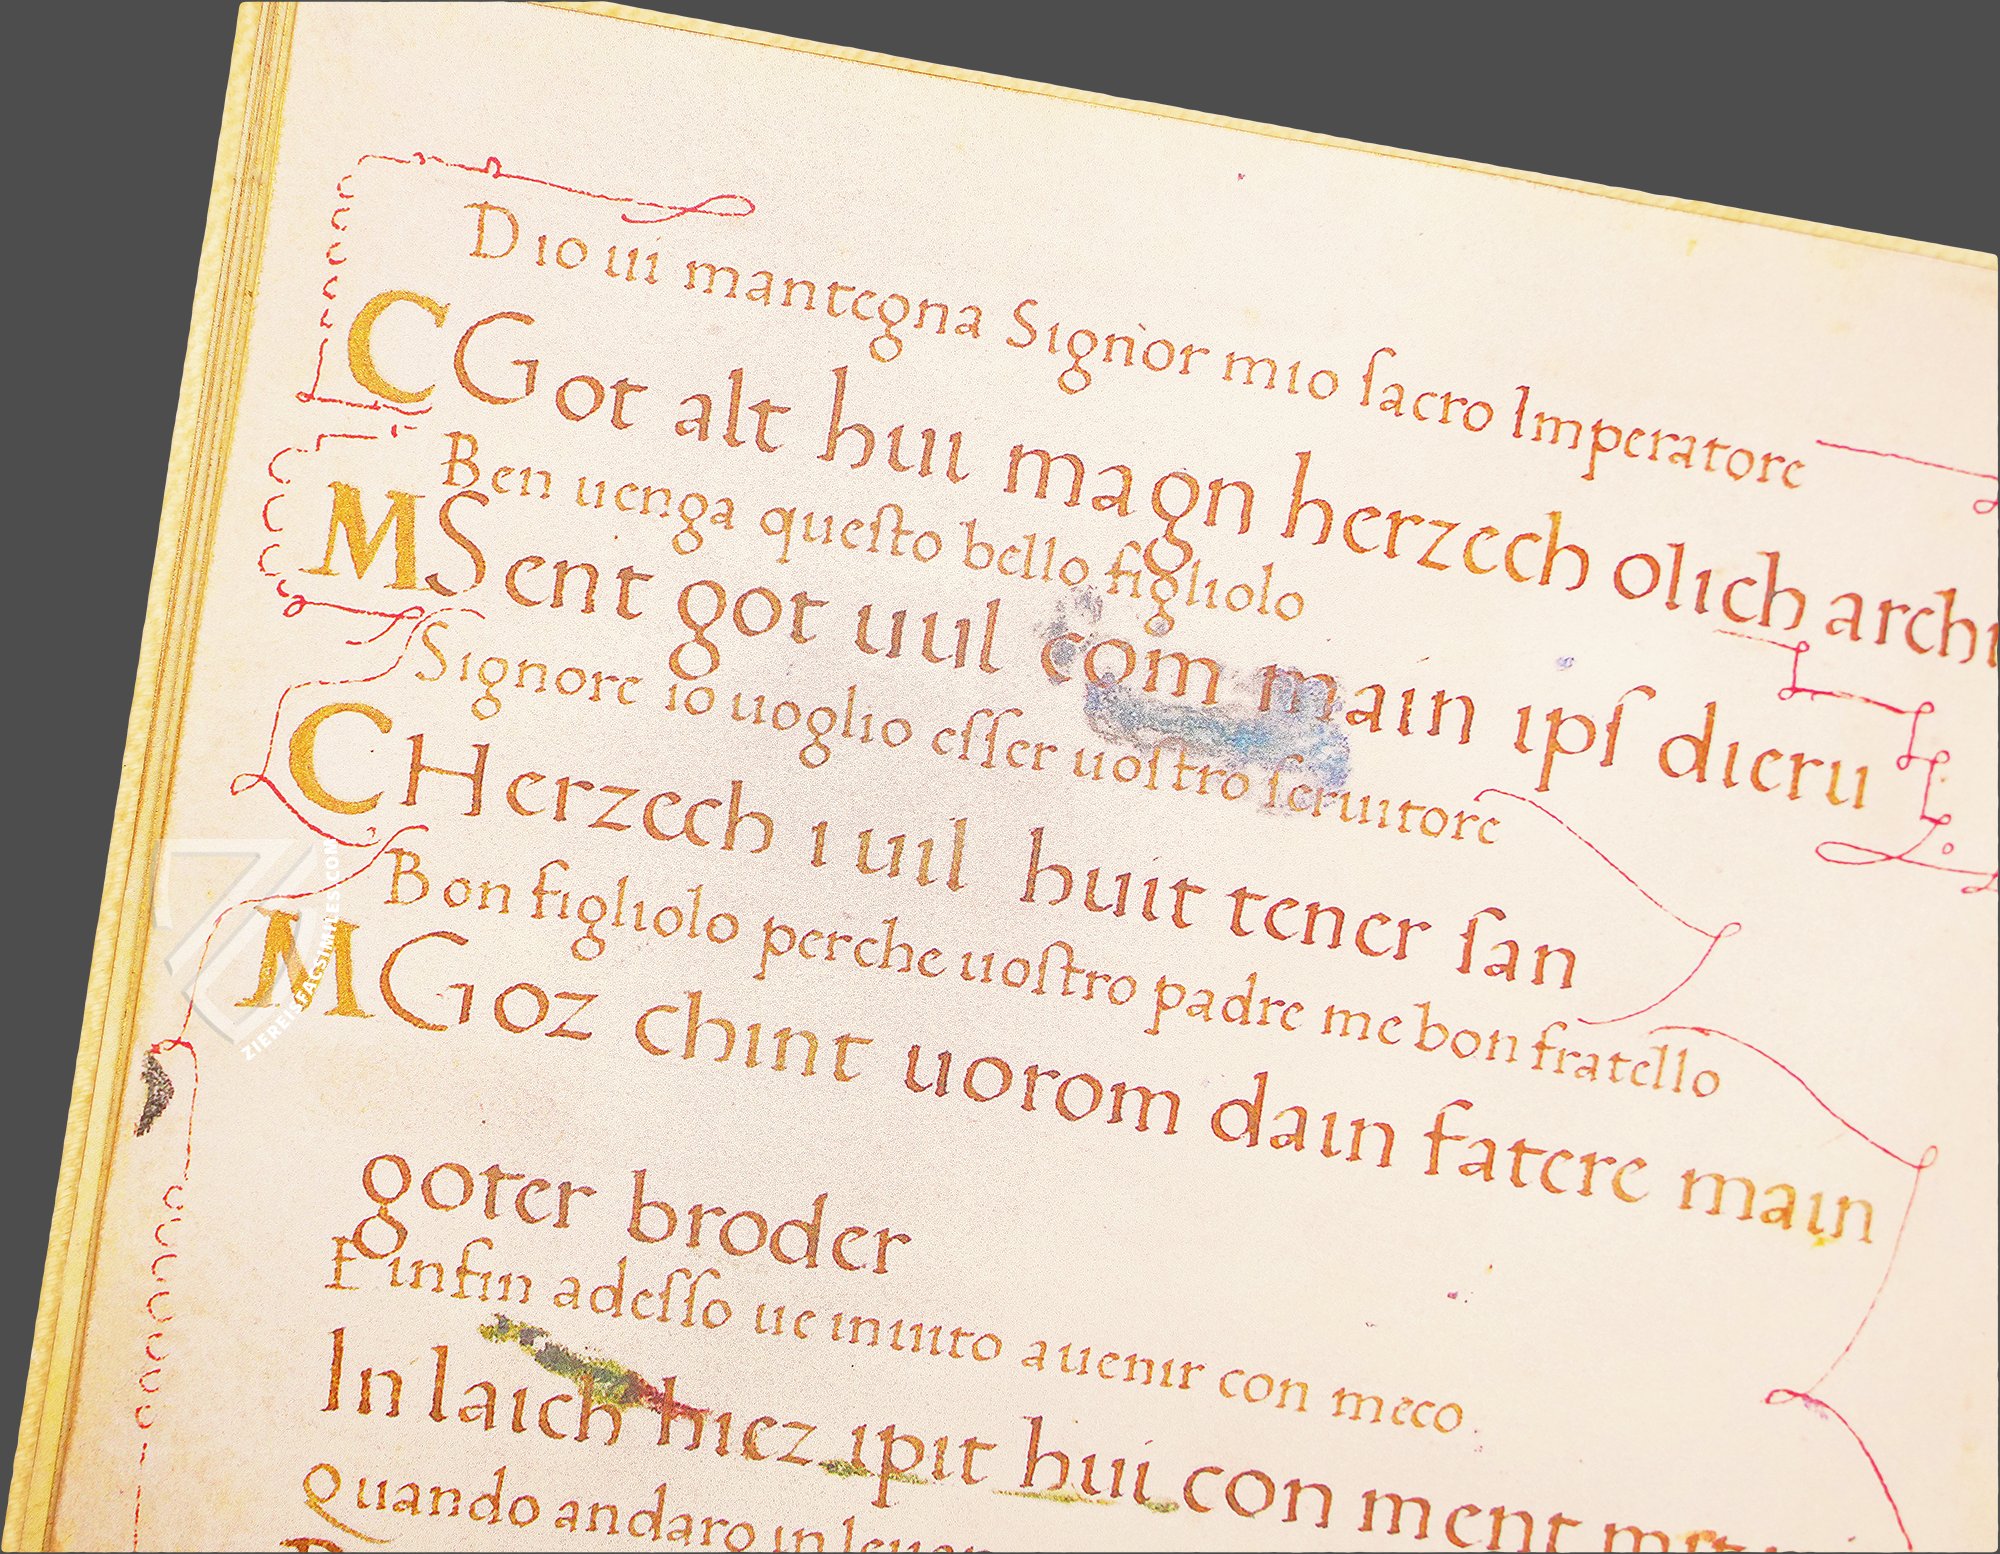 Dio ui mantegna Signor mio ſacro Imperatore
C Got alt huı magn herzech olıch archı
Ben uenga queſto bello figliolo
M Sent got uuıl com maın ıpſ dıeru
Signore io uoglio eſſer uoſtro ſeruitore
C Herzech ı uuıl huit tener ſan
Bon figliolo perche uoſtro padre me bon fratello
M Goz chınt uorom daın fatere maın
goter broder
E infin adeſſo ue inuito auenir con meco.
In laıch hıez ıpıt huı con ment
Quando andaro in
ZIEREISFACSIMILES.COM